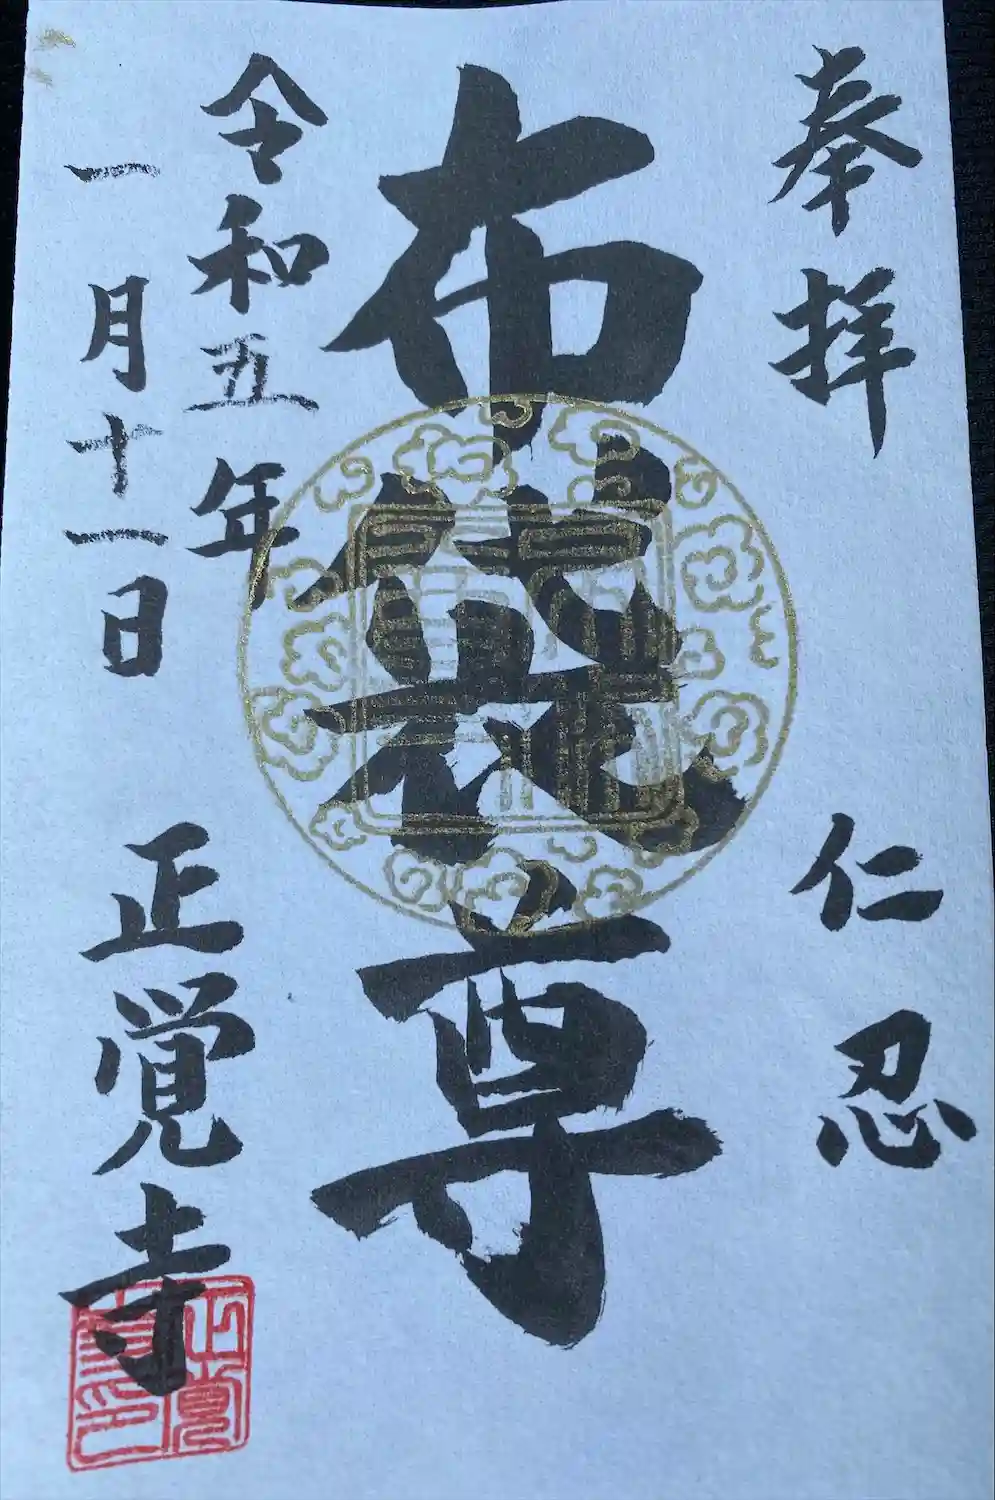 奉拝　仁忍
布袋尊
令和五年
一月十一日
正覚寺
正覚寺印